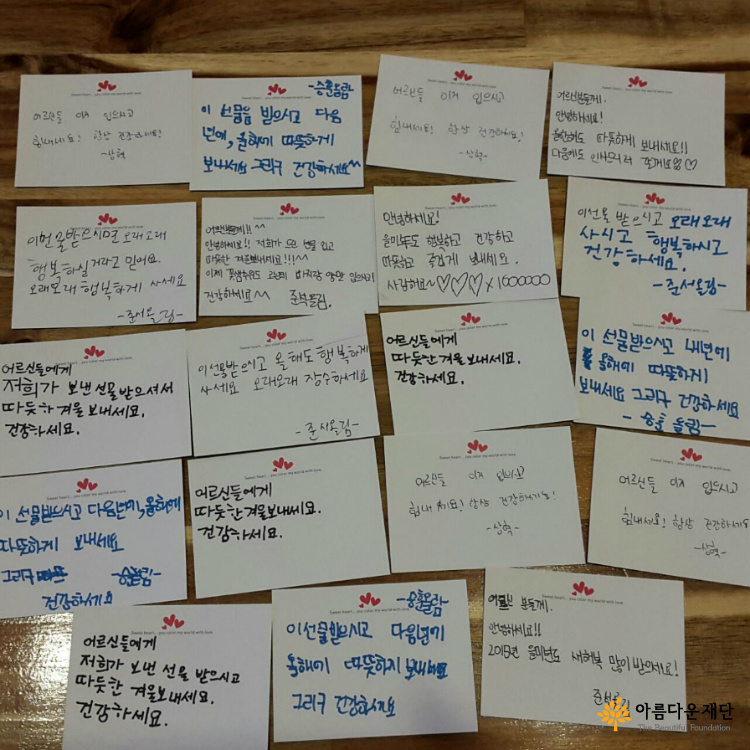 어르신들 이거 입으시고
힘내세요! 항상 건강하세요!
-상혁-
-승훈올림-
이 선물을 받으시고 다음
년에, 올해에 따뜻하게
보내세요 그리구 건강하세요^^
어르신들 이거 입으시고
힘내세요! 항상 건강하세요!
-상혁-
어르신분들께.
안녕하세요!
을미년도 따뜻하게 보내세요!!
다음에도 인사드리러 갈게요♡
이선물받으시면 오래오래
행복하실 거라고 믿어요.
오래오래 행복하게 사세요
-준서올림-
어르신분들께!! ^^
안녕하세요!! 저희가 드린 선물 입고
따뜻한 겨울보내세요!!!^^
건강하세요^^ 준부올림.
안녕하세요!
을미년도 행복하고 건강하고
따뜻하고 즐겁게 보내세요.
사랑해요~♡♡♡×1600000
이선물 받으시고 오래오래
사시고 행복하시고
건강하세요.
-준서올림-
어르신들에게
저희가 보낸선물받으셔서
따듯한겨울보내세요.
건강하세요.
이선물받으시고 올해도 행복하게
사세요 오래오래 장수하세요
-준서올림-
어르신들에게
따듯한 겨울보내세요.
건강하세요.
이 선물받으시고 내년에
올해에 따뜻하게
보내세요 그리구 건강하세요
-승훈 올림-
이 선물받으시고 다음년에, 올해에
따뜻하게 보내세요
그리구 -승훈올림-
건강하세요
어르신들에게
따듯한겨울보내세요.
건강하세요.
어르신들 이거 입으시고
힘내세요! 항상 건강하세요!
-상혁-
어르신들 이거 입으시고
힘내세요! 항상 건강하세요
-상혁-
어르신들에게
저희가 보낸 선물 받으시고
따듯한 겨울보내세요.
건강하세요.
-승훈올림-
이선물받으시고 다음년에
올해에 따뜻하지 보내세요
그리구 건강하세요
어르신 분들께.
안녕하세요!!
2015년 을미년도 새해복 많이 받으세요!
아름다운재단
The Beautiful Foundation